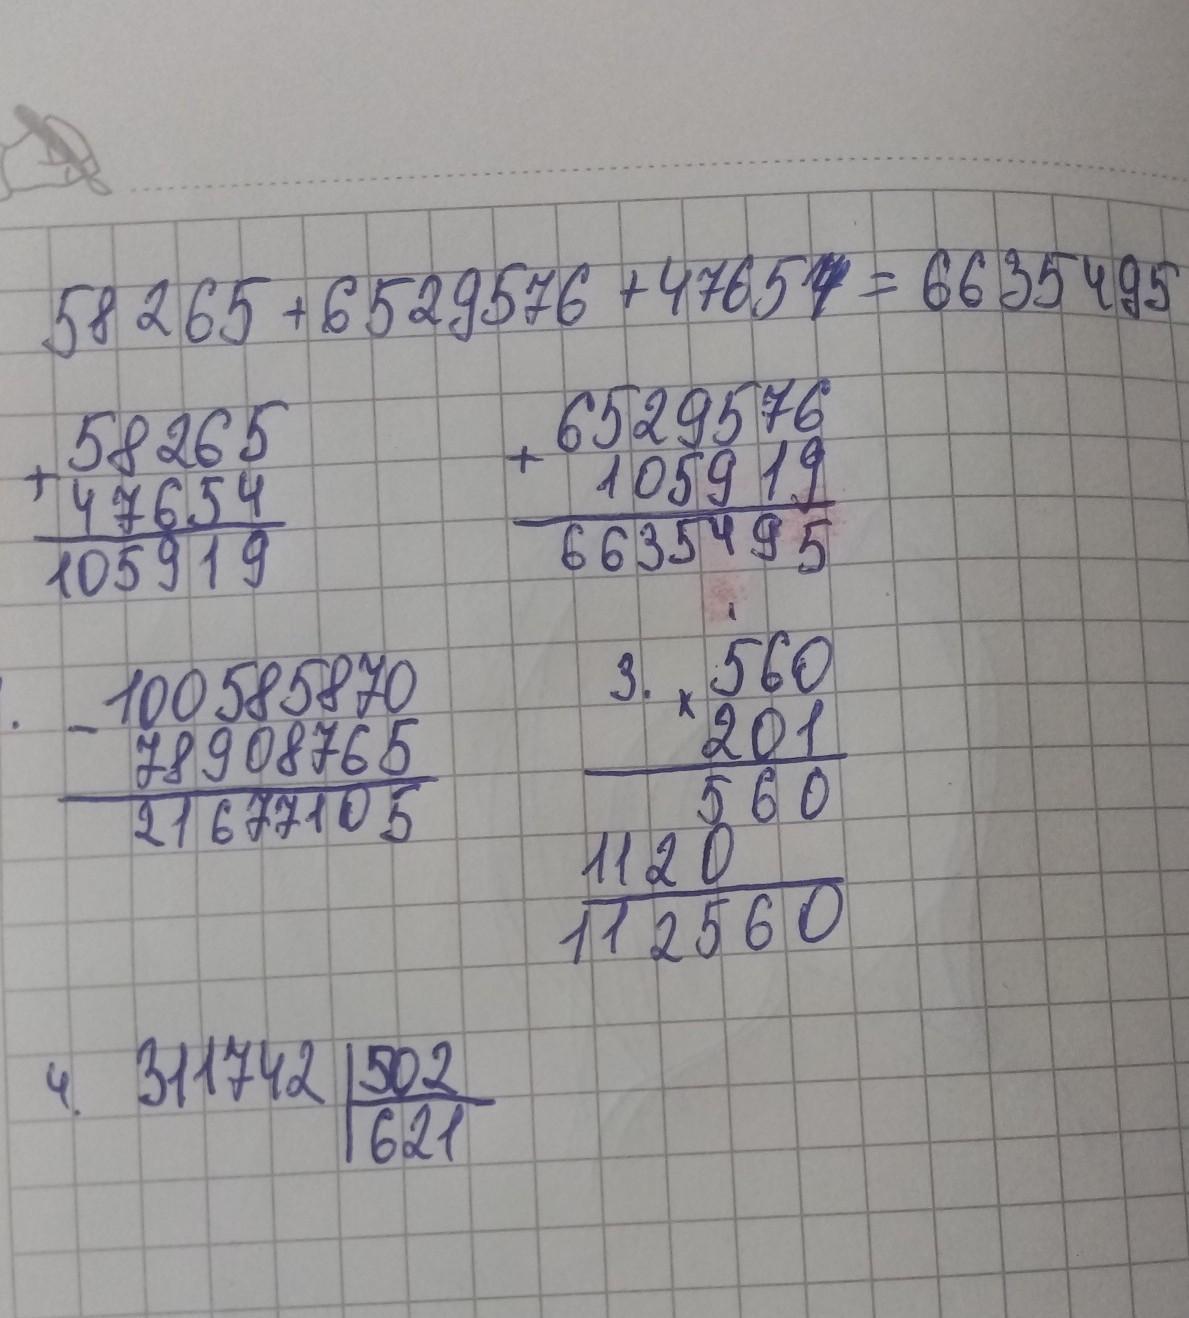 58265+6529576+47654=6635495
58265
+
47654
105919
6529576
+
105919
6635495
100585870
-
78908765
21677105
3. 560
x
201
560
1120
112560
4. 311742 502
621